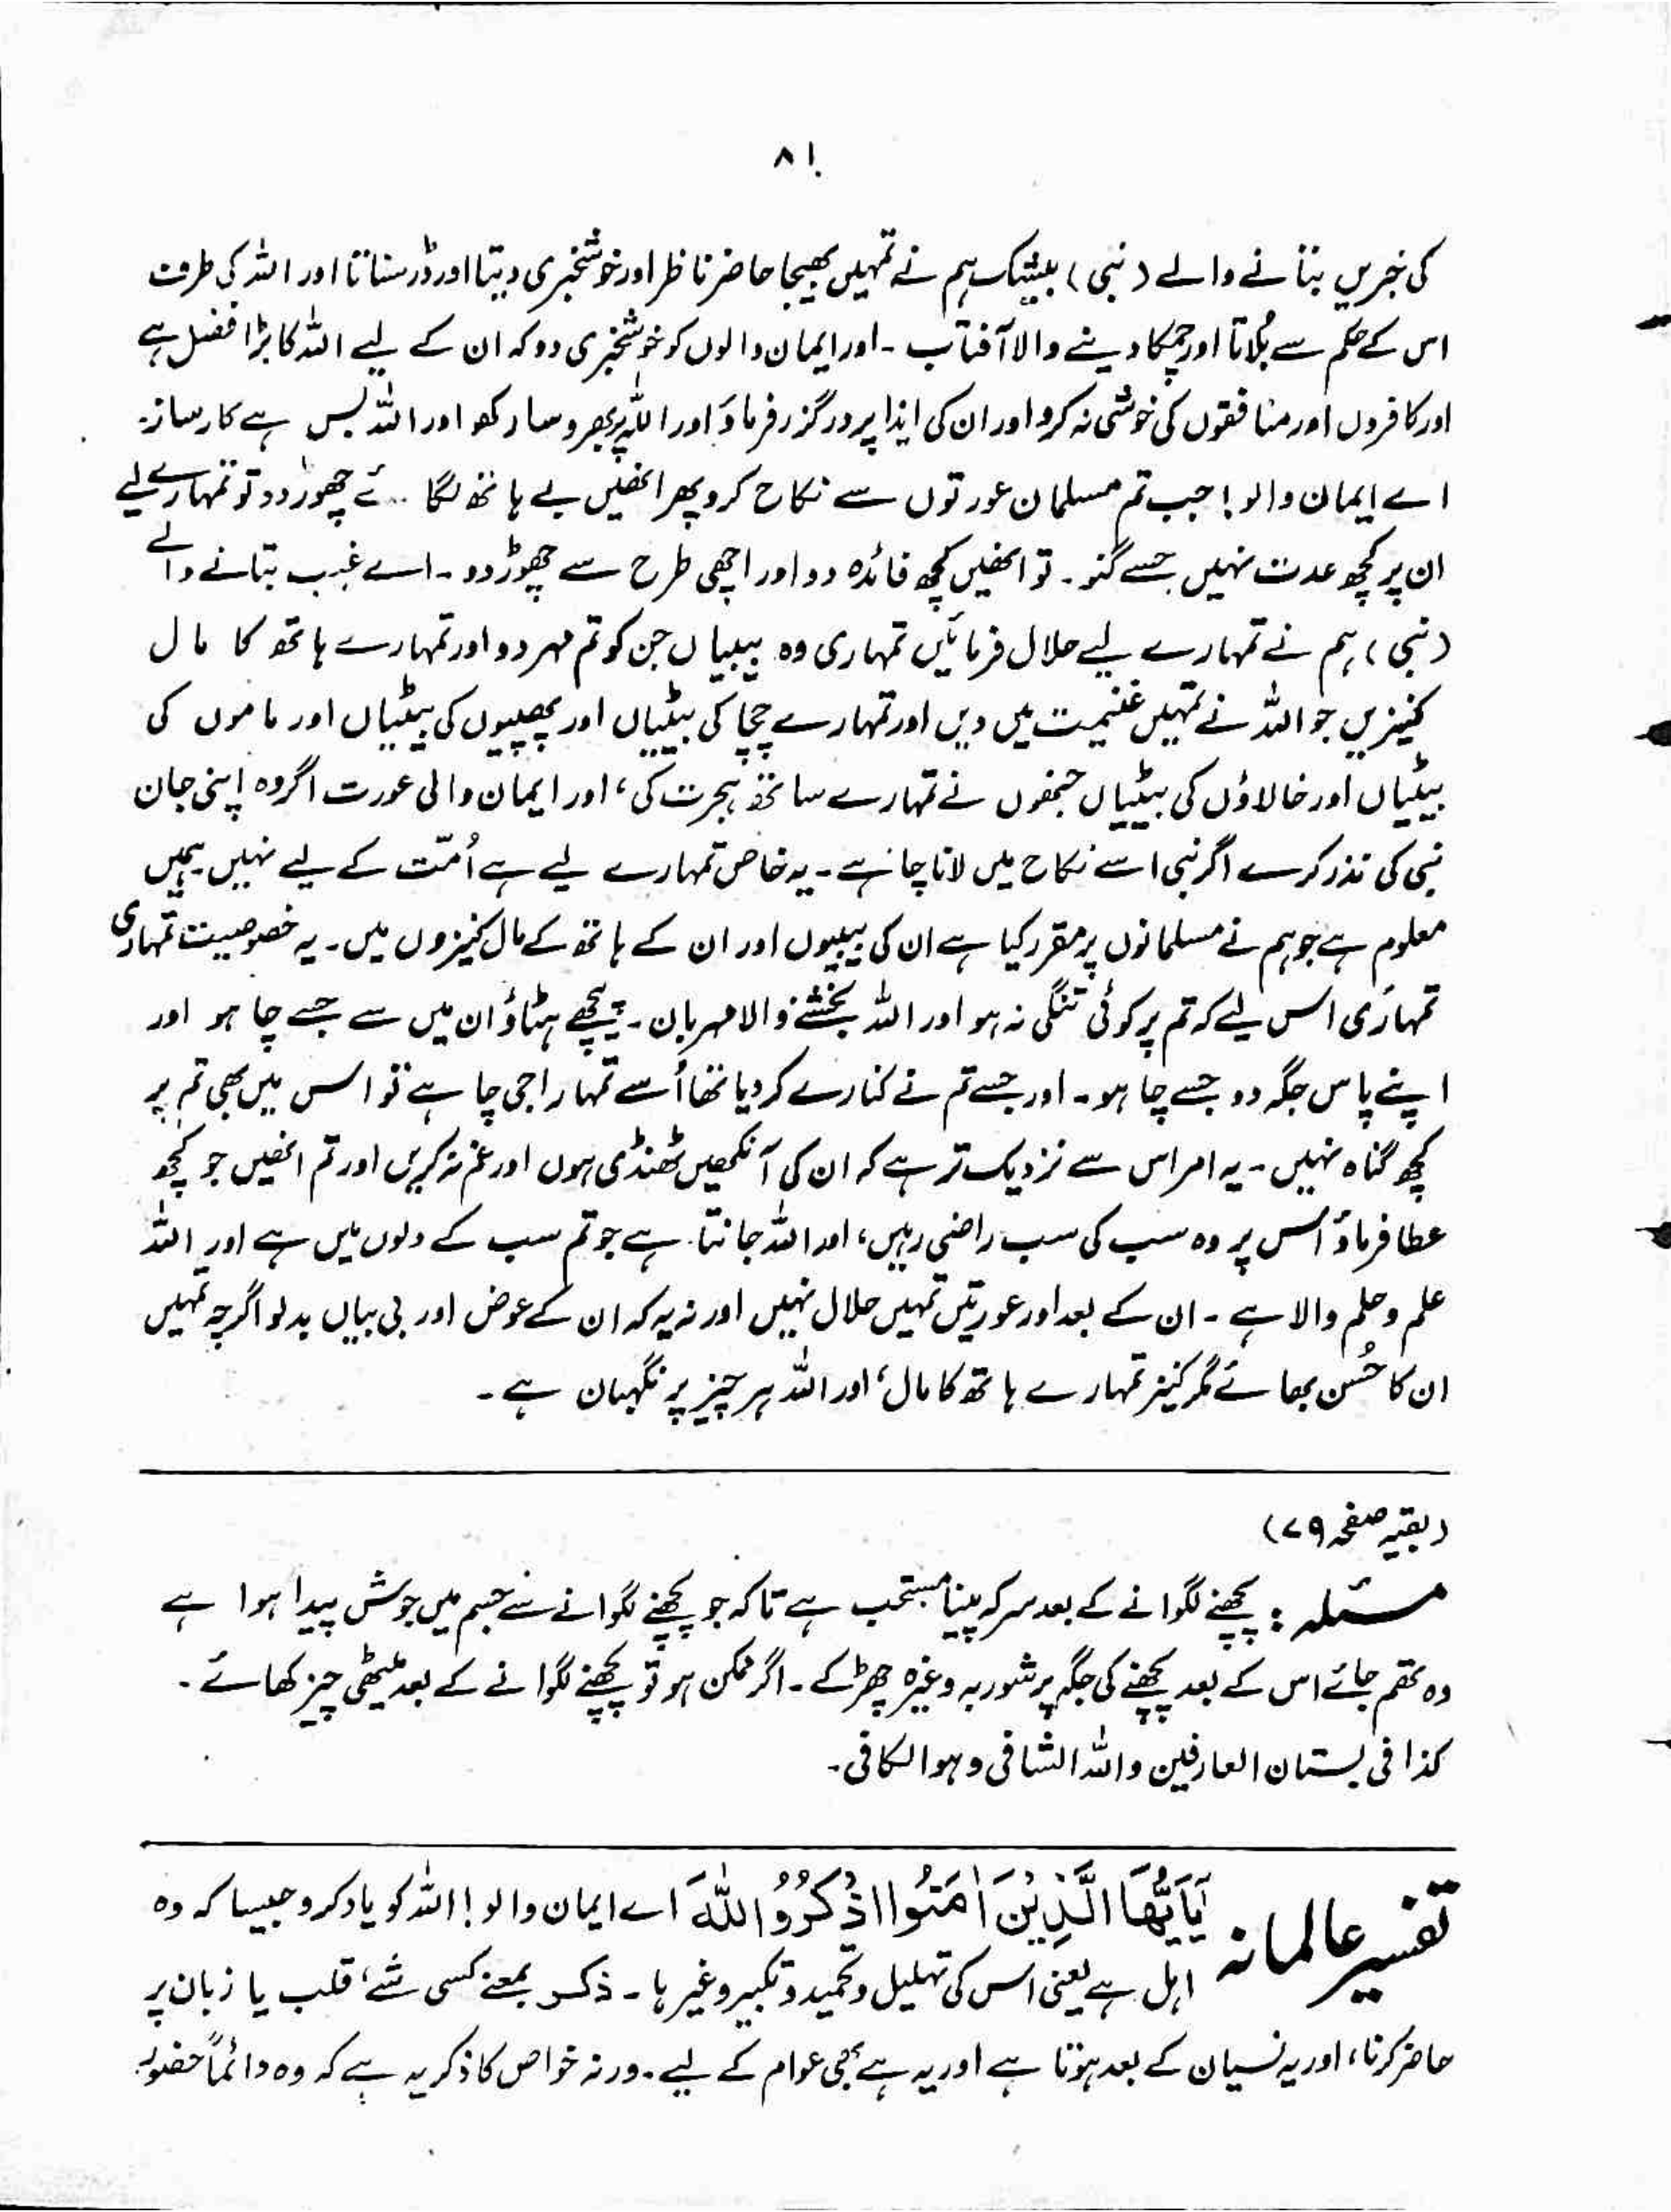 ۸۱
کی خبریں بتانے والے (نبی) بیشک ہم نے تمہیں بھیجا حاضر ناظر اور خوشخبری دیتا اور ڈر سناتا اور اللہ کی طرف
اس کے حکم سے بُلاتا اور چمکا دینے والا آفتاب ۔ اور ایمان والوں کو خوشخبری دو کہ ان کے لیے اللہ کا بڑا فضل ہے
اور کافروں اور منافقوں کی خوشی نہ کرو اور ان کی ایذا پر درگزر فرماؤ اور اللہ پر بھروسا رکھو اور اللہ بس ہے کارساز۔
اے ایمان والو! جب تم مسلمان عورتوں سے نکاح کرو پھر انھیں بے ہاتھ لگا ئے چھوڑ دو تو تمہارے لیے
ان پر کچھ عدت نہیں جسے گنو ۔ تو انھیں کچھ فائدہ دو اور اچھی طرح سے چھوڑ دو ۔ اے غیب بتانے والے
(نبی) ہم نے تمہارے لیے حلال فرمائیں تمہاری وہ بیبیاں جن کو تم مہر دو اور تمہارے ہاتھ کا مال
کنیزیں جو اللہ نے تمہیں غنیمت میں دیں اور تمہارے چچا کی بیٹیاں اور پھپیوں کی بیٹیاں اور ماموں کی
بیٹیاں اور خالاؤں کی بیٹیاں جنھوں نے تمہارے ساتھ ہجرت کی، اور ایمان والی عورت اگر وہ اپنی جان
نبی کی نذر کرے اگر نبی اسے نکاح میں لانا چاہے ۔ یہ خاص تمہارے لیے ہے اُمّت کے لیے نہیں۔ ہمیں
معلوم ہے جو ہم نے مسلمانوں پر مقرر کیا ہے ان کی بیبیوں اور ان کے ہاتھ کے مال کنیزوں میں۔ یہ خصوصیت تمہاری
تمہاری اس لیے کہ تم پر کوئی تنگی نہ ہو اور اللہ بخشنے والا مہربان ۔ پیچھے ہٹاؤ ان میں سے جسے چاہو اور
اپنے پاس جگہ دو جسے چاہو ۔ اور جسے تم نے کنارے کر دیا تھا اُسے تمہارا جی چاہے تو اس میں بھی تم پر
کچھ گناہ نہیں ۔ یہ امر اس سے نزدیک تر ہے کہ ان کی آنکھیں ٹھنڈی ہوں اور غم نہ کریں اور تم انھیں جو کچھ
عطا فرماؤ اُس پر وہ سب کی سب راضی رہیں، اور اللہ جانتا ہے جو تم سب کے دلوں میں ہے اور اللہ
علم و حلم والا ہے ۔ ان کے بعد اور عورتیں تمہیں حلال نہیں اور نہ یہ کہ ان کے عوض اور بی بیاں بدلو اگرچہ تمہیں
ان کا حُسن بھائے مگر کنیز تمہارے ہاتھ کا مال، اور اللہ ہر چیز پر نگہبان ہے ۔
(بقیہ صفحہ ۷۹)
مسئلہ : پچھنے لگوانے کے بعد سرکہ پینا مستحب ہے تاکہ جو پچھنے لگوانے سے جسم میں جوش پیدا ہوا ہے
وہ تھم جائے اس کے بعد پچھنے کی جگہ پر شوربہ وغیرہ چھڑکے ۔ اگر ممکن ہو تو پچھنے لگوانے کے بعد میٹھی چیز کھائے ۔
کذا فی بستان العارفین واللہ الشافی وہو الکافی۔
تفسیر عالمانہ یٰٓاَیُّھَا الَّذِیْنَ اٰمَنُوا اذْکُرُوا اللّٰہَ اے ایمان والو! اللہ کو یاد کرو جیسا کہ وہ
اہل ہے یعنی اس کی تہلیل و تحمید و تکبیر وغیرہا ۔ ذکر بمعنے کسی شے، قلب یا زبان پر
حاضر کرنا، اور یہ نسیان کے بعد ہوتا ہے اور یہ ہے بھی عوام کے لیے ۔ ورنہ خواص کا ذکر یہ ہے کہ وہ دائماً حضور